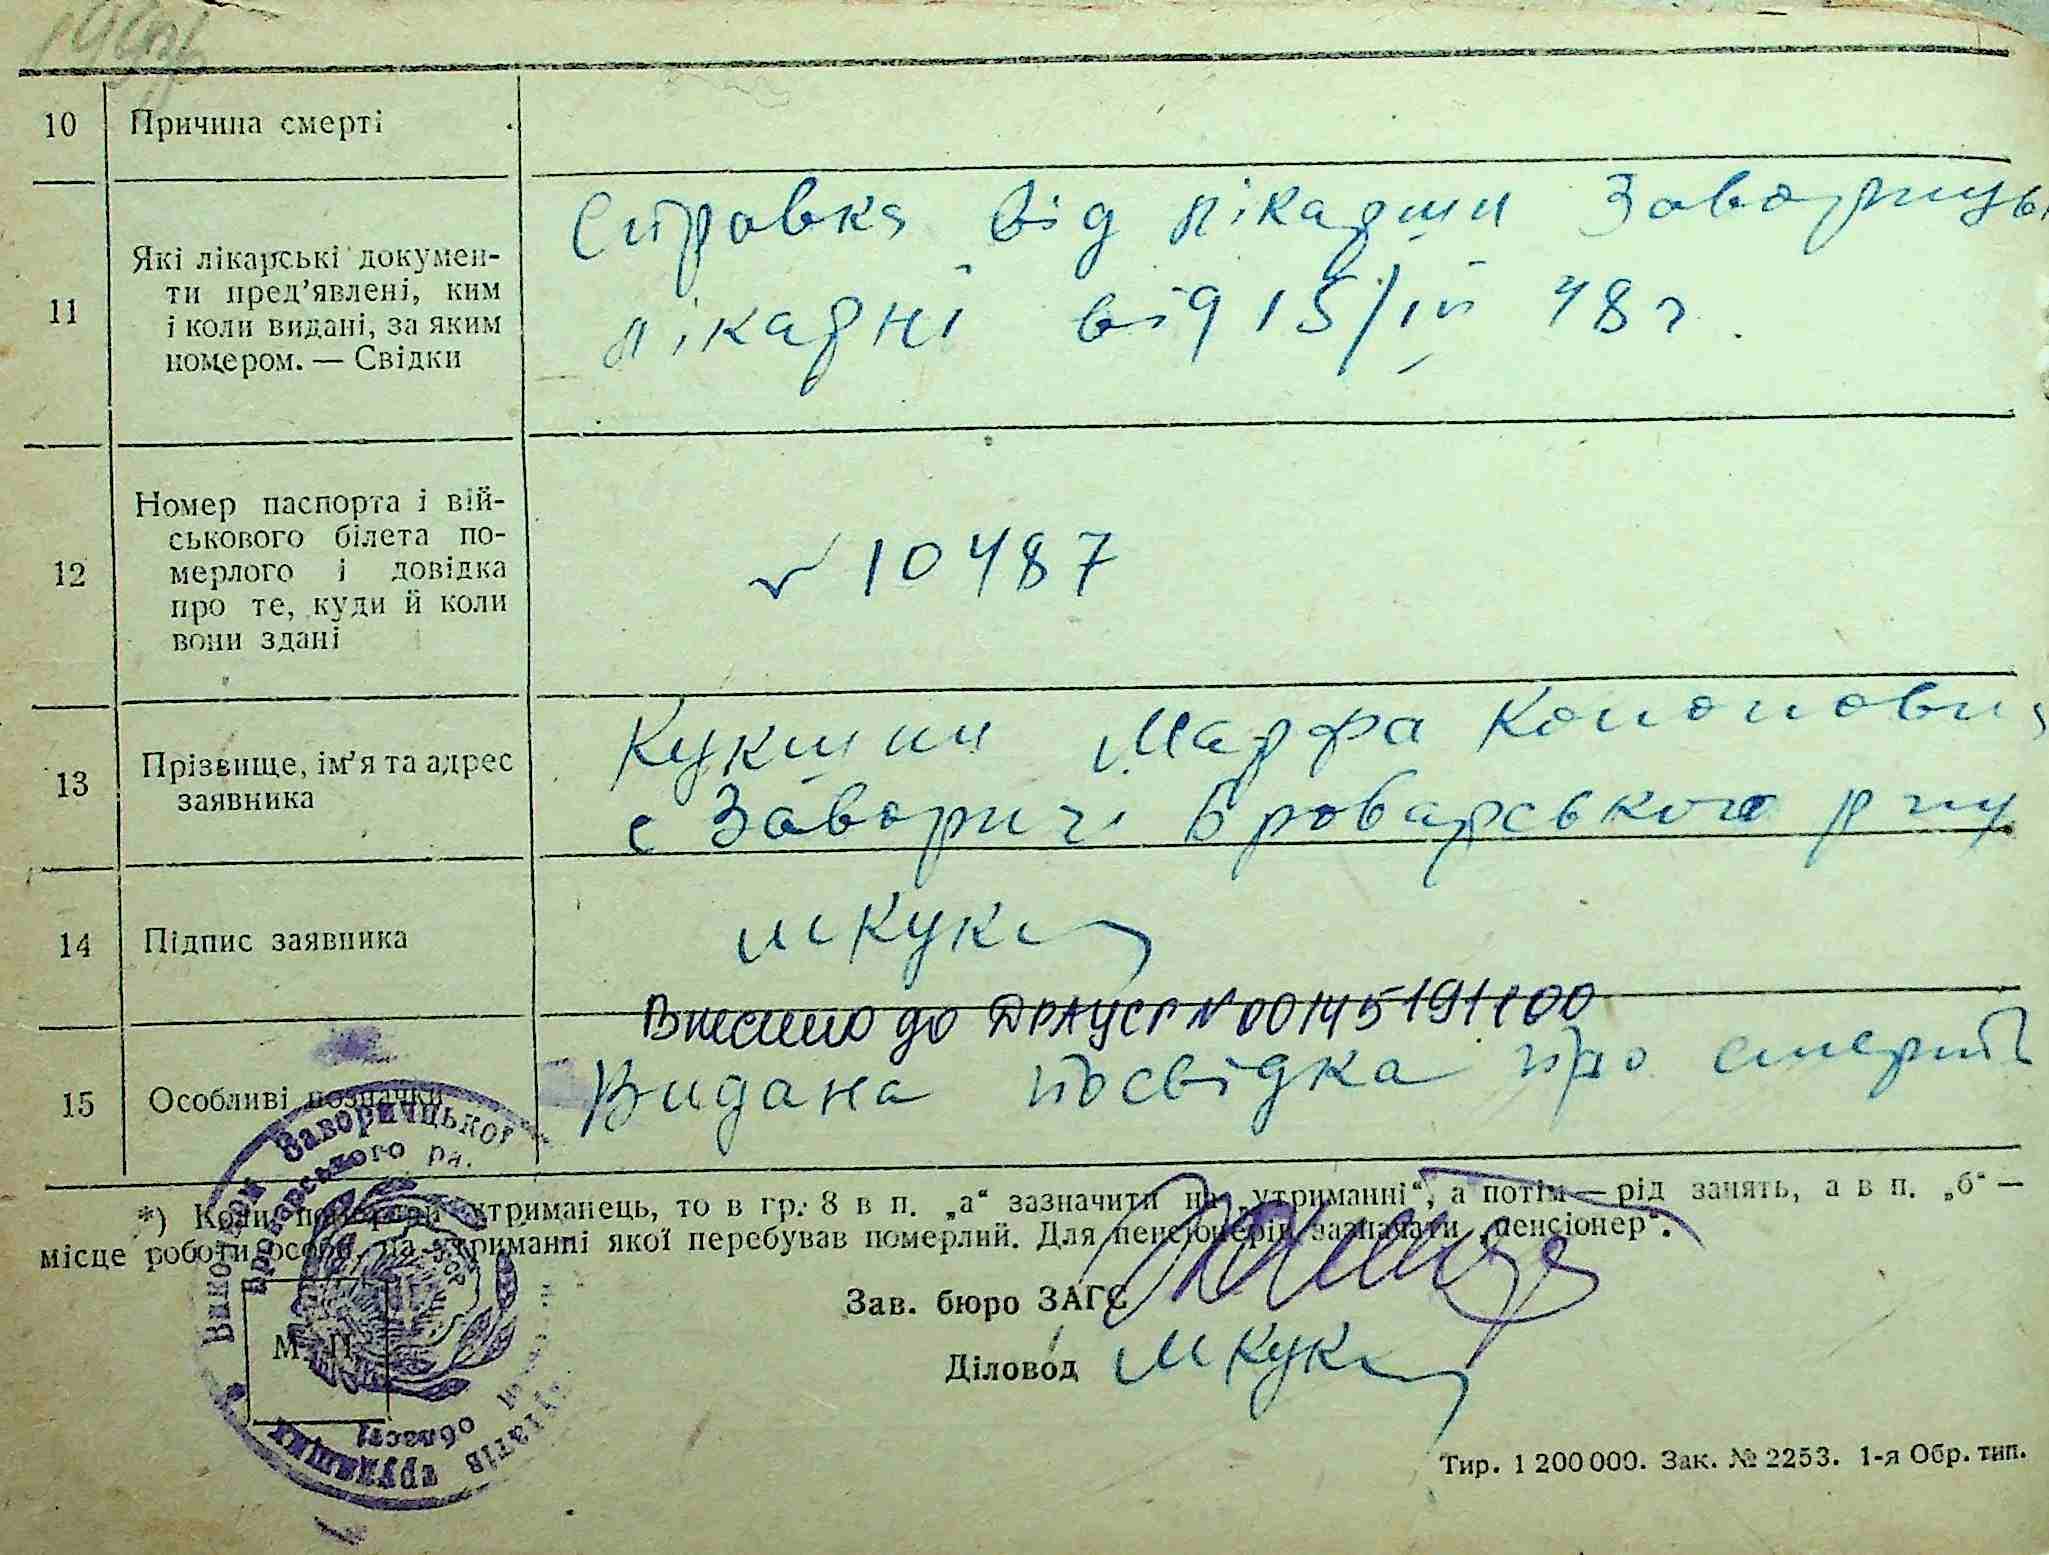 10 Причина смерті
11 Які лікарські докумен-
ти пред’явлені, ким
і коли видані, за яким
номером. — Свідки
Справка від лікарши
лікарні від 15/ІІІ 48 г.
12 Номер паспорта і вій-
ськового білета по-
мерлого і довідка
про те, куди й коли
вони здані
10487
13 Прізвище, ім’я та адрес
заявника
Марфа Кононовна
с Заворичі Броварського р ну
14 Підпис заявника
МКук
Внесено до ДРАЦСГ N 00145191100
15 Особливі позначки
Видана посвідка про смерть
*) Коли померлий утриманець, то в гр. 8 в п. „а“ зазначити на „утриманні“, а потім — рід занять, а в п. „б“ —
місце роботи особи, на утриманні якої перебував померлий. Для пенсіонерів зазначати „пенсіонер“.
Виконком Заворичцької
Броварського
трудящих
області
М. П.
Зав. бюро ЗАГС
Діловод МКук
Тир. 1 200 000. Зак. № 2253. 1-я Обр. тип.